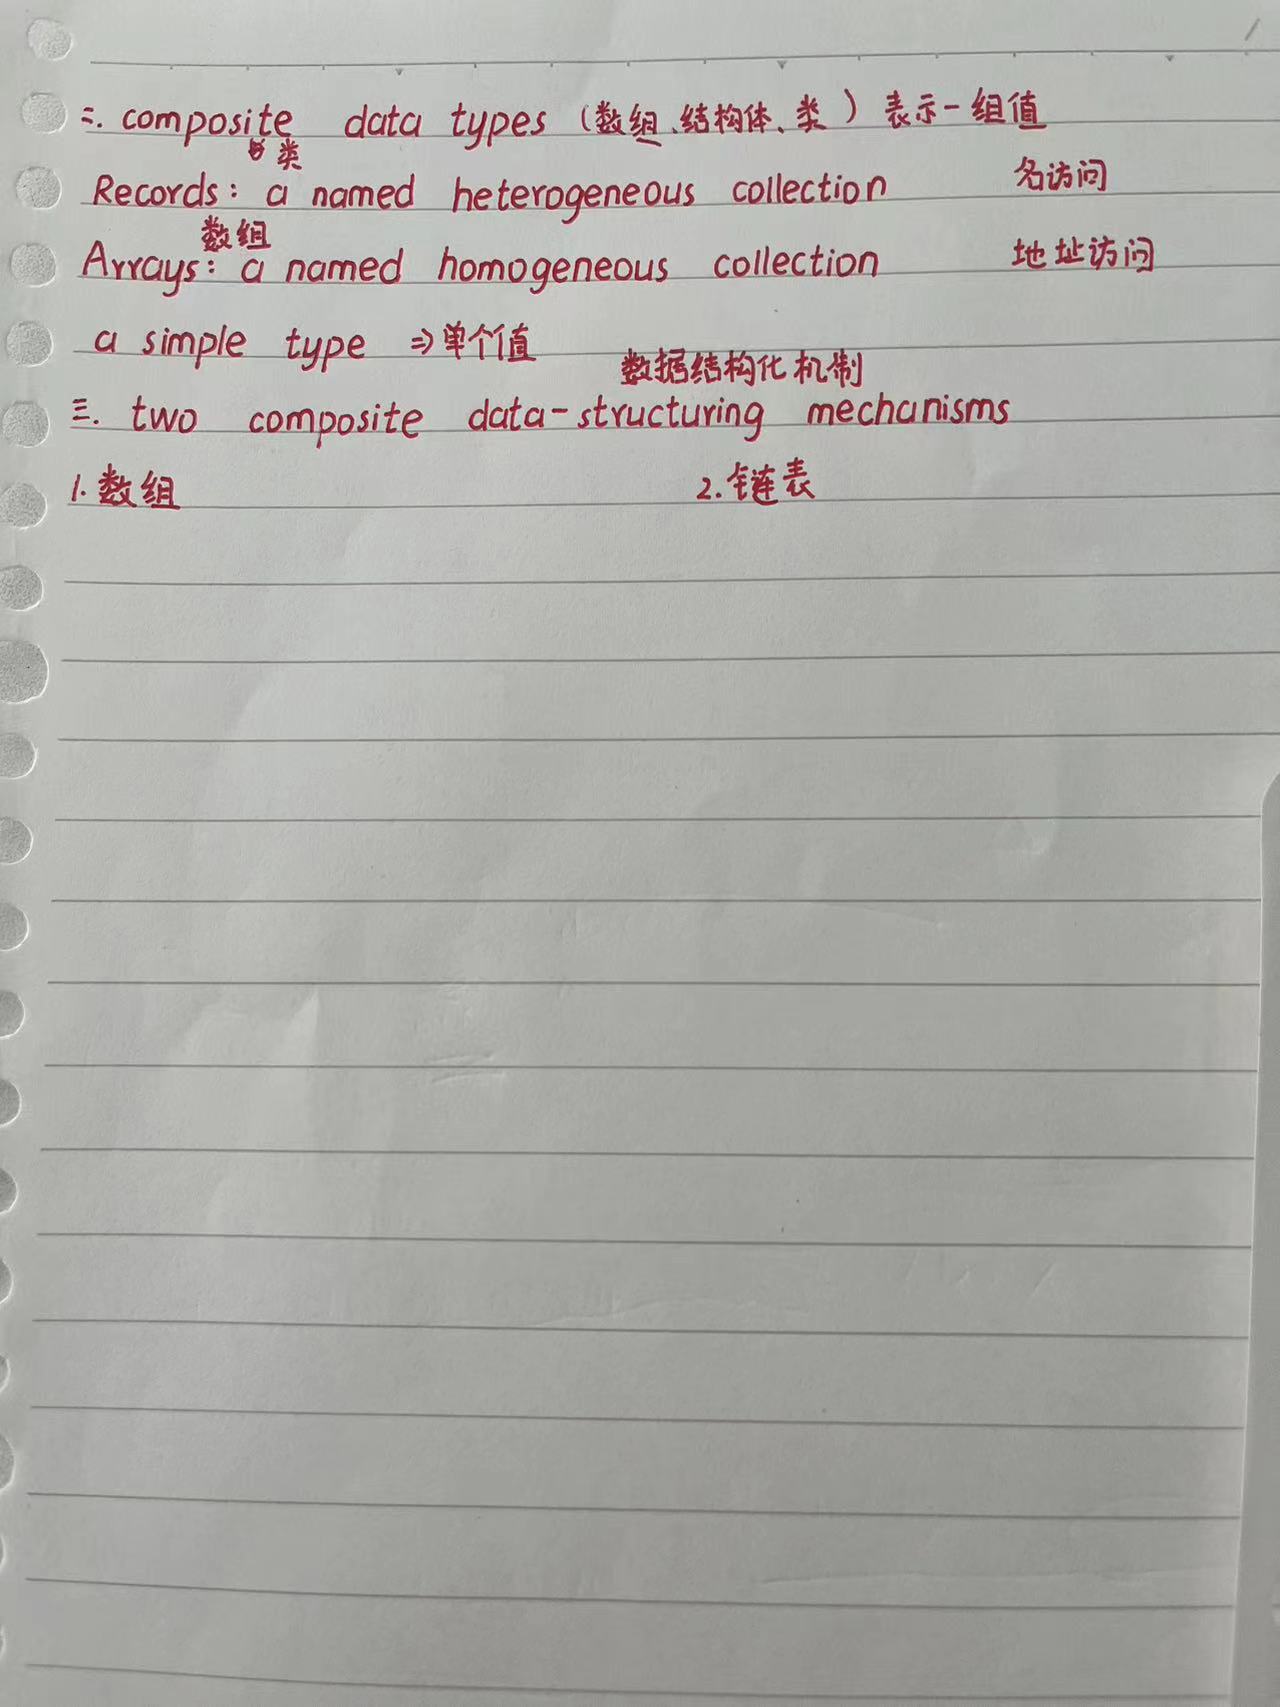 二. composite data types (数组、结构体、类) 表示一组值
类
Records: a named heterogeneous collection 名访问
数组
Arrays: a named homogeneous collection 地址访问
a simple type ⇒ 单个值
数据结构化机制
三. two composite data-structuring mechanisms
1. 数组 2. 链表